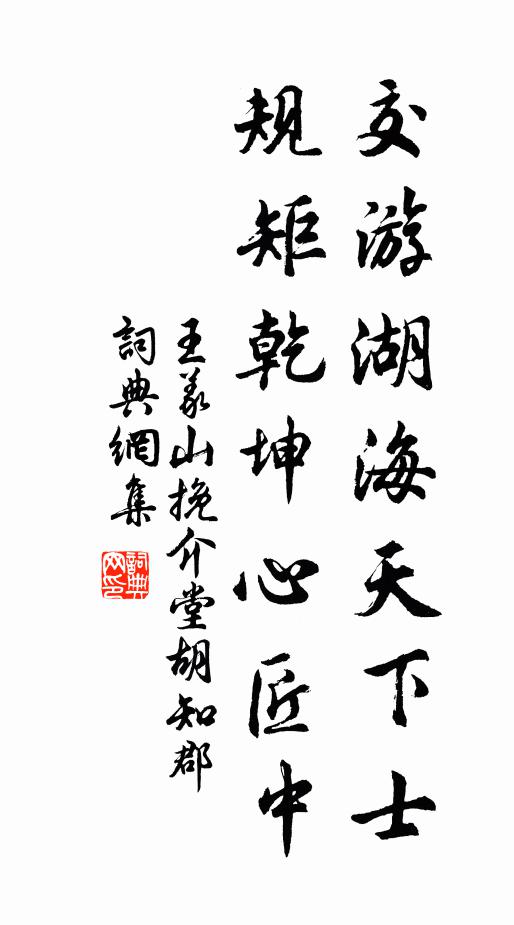 交游湖海天下士
規矩乾坤心匠中
王義山挽介堂胡知郡
詞典網集
詞典
网印